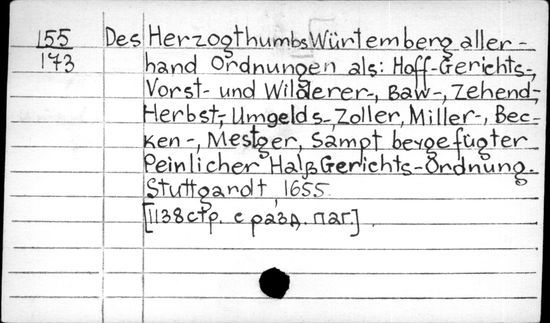 155 Des Herzogthumbs Würtemberg aller-
173 hand Ordnungen als: Hoff-Gerichts-,
Vorst- und Wilderer-, Baw-, Zehend-,
Herbst-, Umgelds-, Zoller, Miller-, Bec-
ken-, Mestger, Sampt beygefügter
Peinlicher Halß Gerichts-Ordnung.
Stuttgardt, 1655.
[1138 стр. с разд. паг.]